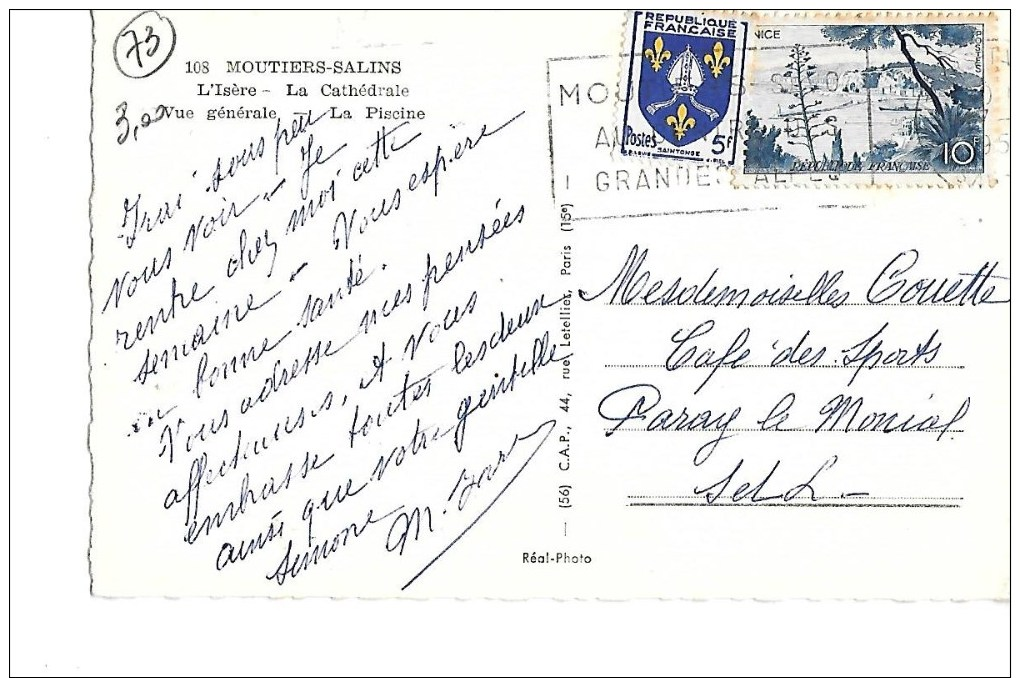 73
3,00
108 MOUTIERS-SALINS
L'Isère - La Cathédrale
Vue générale - La Piscine
Irai sous peu
vous voir - Je
rentre chez moi cette
semaine - Vous espère
en bonne santé.
Vous adresse mes pensées
affectueuses, et vous
embrasse toutes les deux
ainsi que votre gentille
Simone
(56) C.A.P., 44, rue Letellier, Paris (15e)
Réal-Photo
REPUBLIQUE
FRANÇAISE
Postes 5F
SAINTONGE
NICE
POSTES
10F
REPUBLIQUE FRANÇAISE
MOU
GRANDES ALPES
Mesdemoiselles Couette
Cafe des Sports
Paray le Monial
S et L -